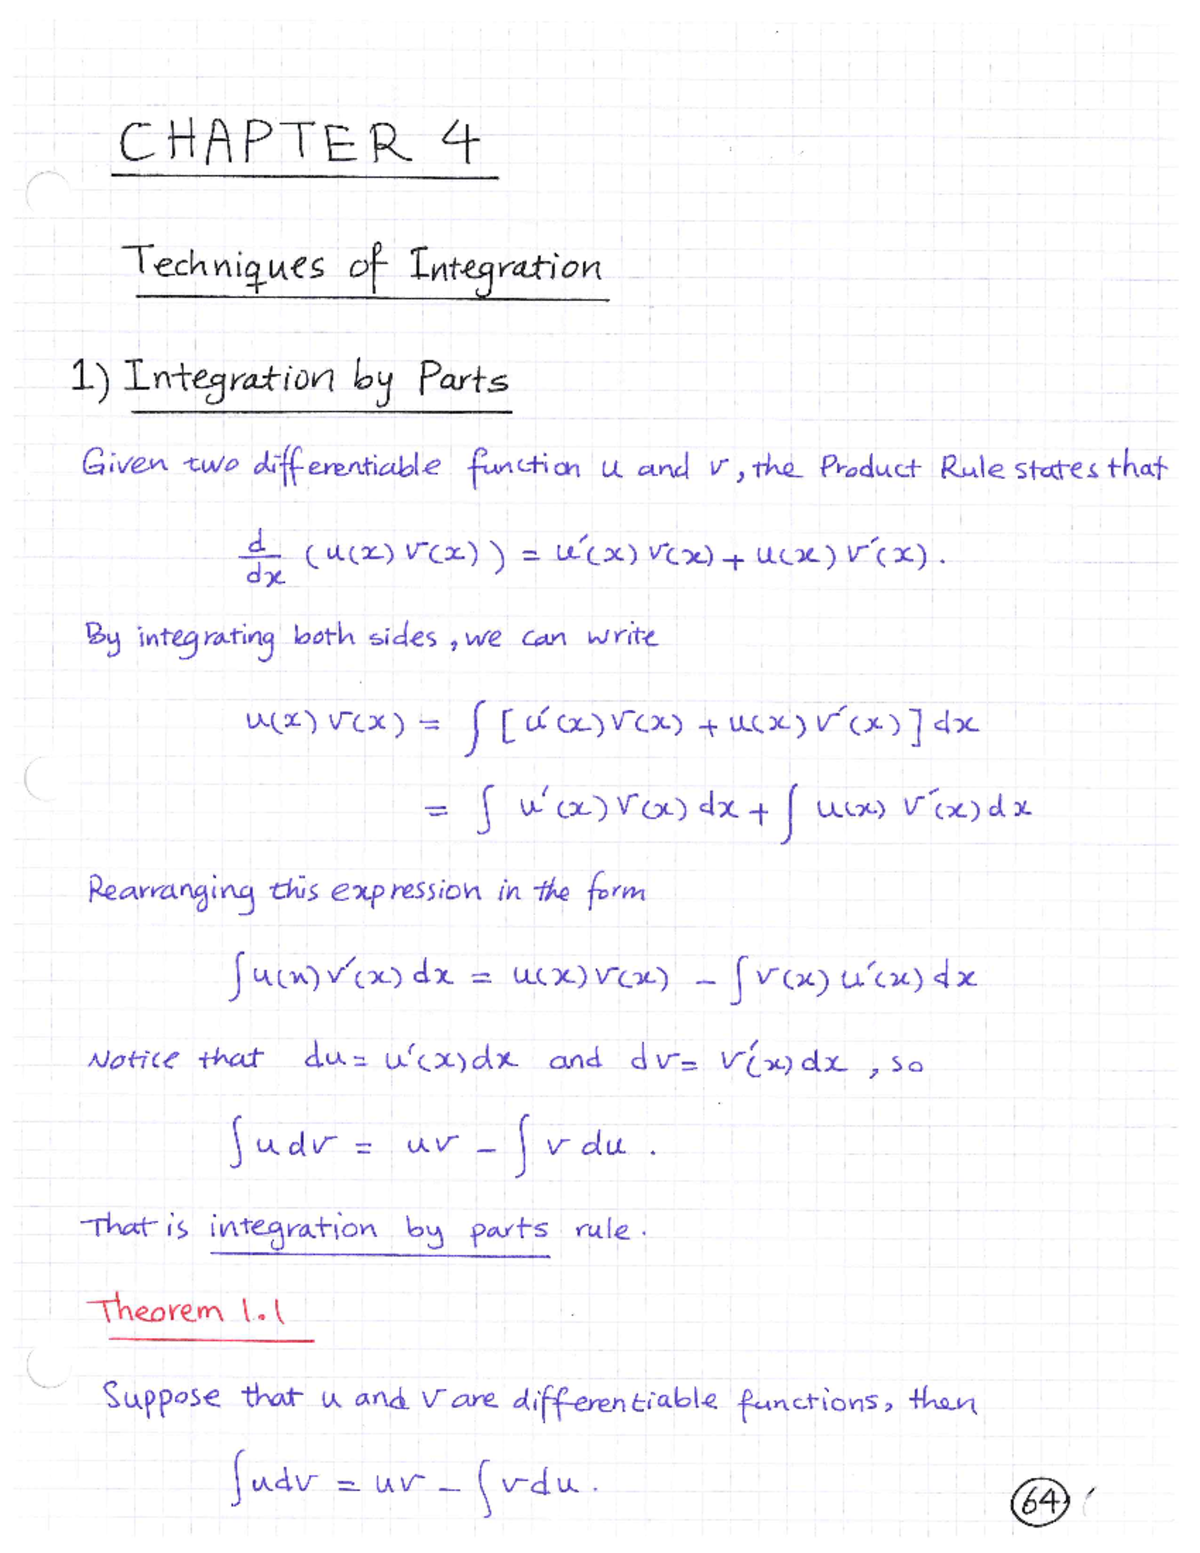 CHAPTER 4
Techniques of Integration
1) Integration by Parts
Given two differentiable function u and v, the Product Rule states that
d/dx (u(x) v(x)) = u'(x) v(x) + u(x) v'(x).
By integrating both sides, we can write
u(x) v(x) = ∫ [u'(x) v(x) + u(x) v'(x)] dx
= ∫ u'(x) v(x) dx + ∫ u(x) v'(x) dx
Rearranging this expression in the form
∫ u(x) v'(x) dx = u(x) v(x) - ∫ v(x) u'(x) dx
Notice that du = u'(x) dx and dv = v'(x) dx, so
∫ u dv = uv - ∫ v du.
That is integration by parts rule.
Theorem 1.1
Suppose that u and v are differentiable functions, then
∫ u dv = uv - ∫ v du.
64